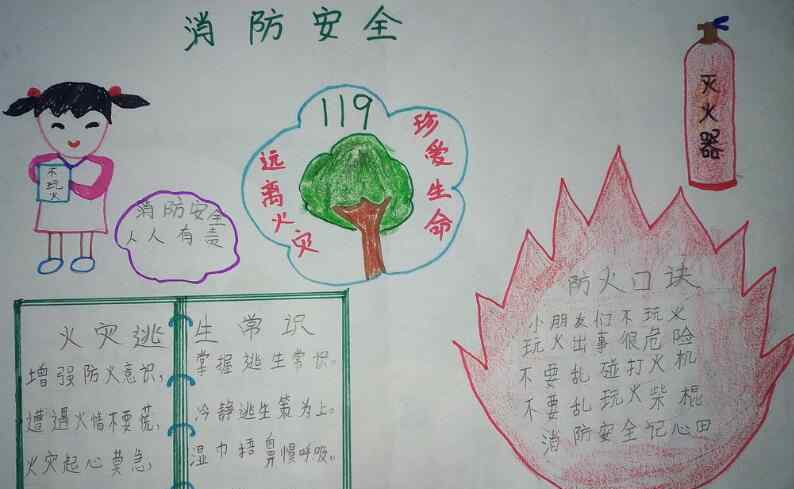 消防安全
灭火器
119
远离火灾
珍爱生命
不玩火
消防安全
人人有责
火灾逃生常识
增强防火意识，掌握逃生常识。
遭遇火情不要慌，冷静逃生策为上。
火灾起心莫急，湿巾捂鼻慢呼吸。
防火口诀
小朋友们不玩火
玩火出事很危险
不要乱碰打火机
不要乱玩火柴棍
消防安全记心田